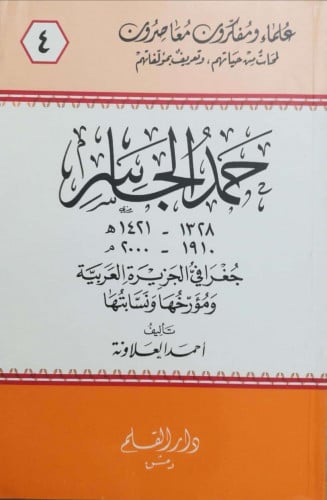 ٤
علماء ومفكرون معاصرون
لمحات من حياتهم، وتعريف بمؤلفاتهم
حَمَدُ الجَاسِر
١٣٢٨ - ١٤٢١ هـ
١٩١٠ - ٢٠٠٠ م
جُغرَافيُّ الجَزيرَة العَربيَّة
وَمُؤرّخُهَا وَنَسَّابَتُهَا
تأليفُ
أحمد العلاونة
دار القلم
دمشق